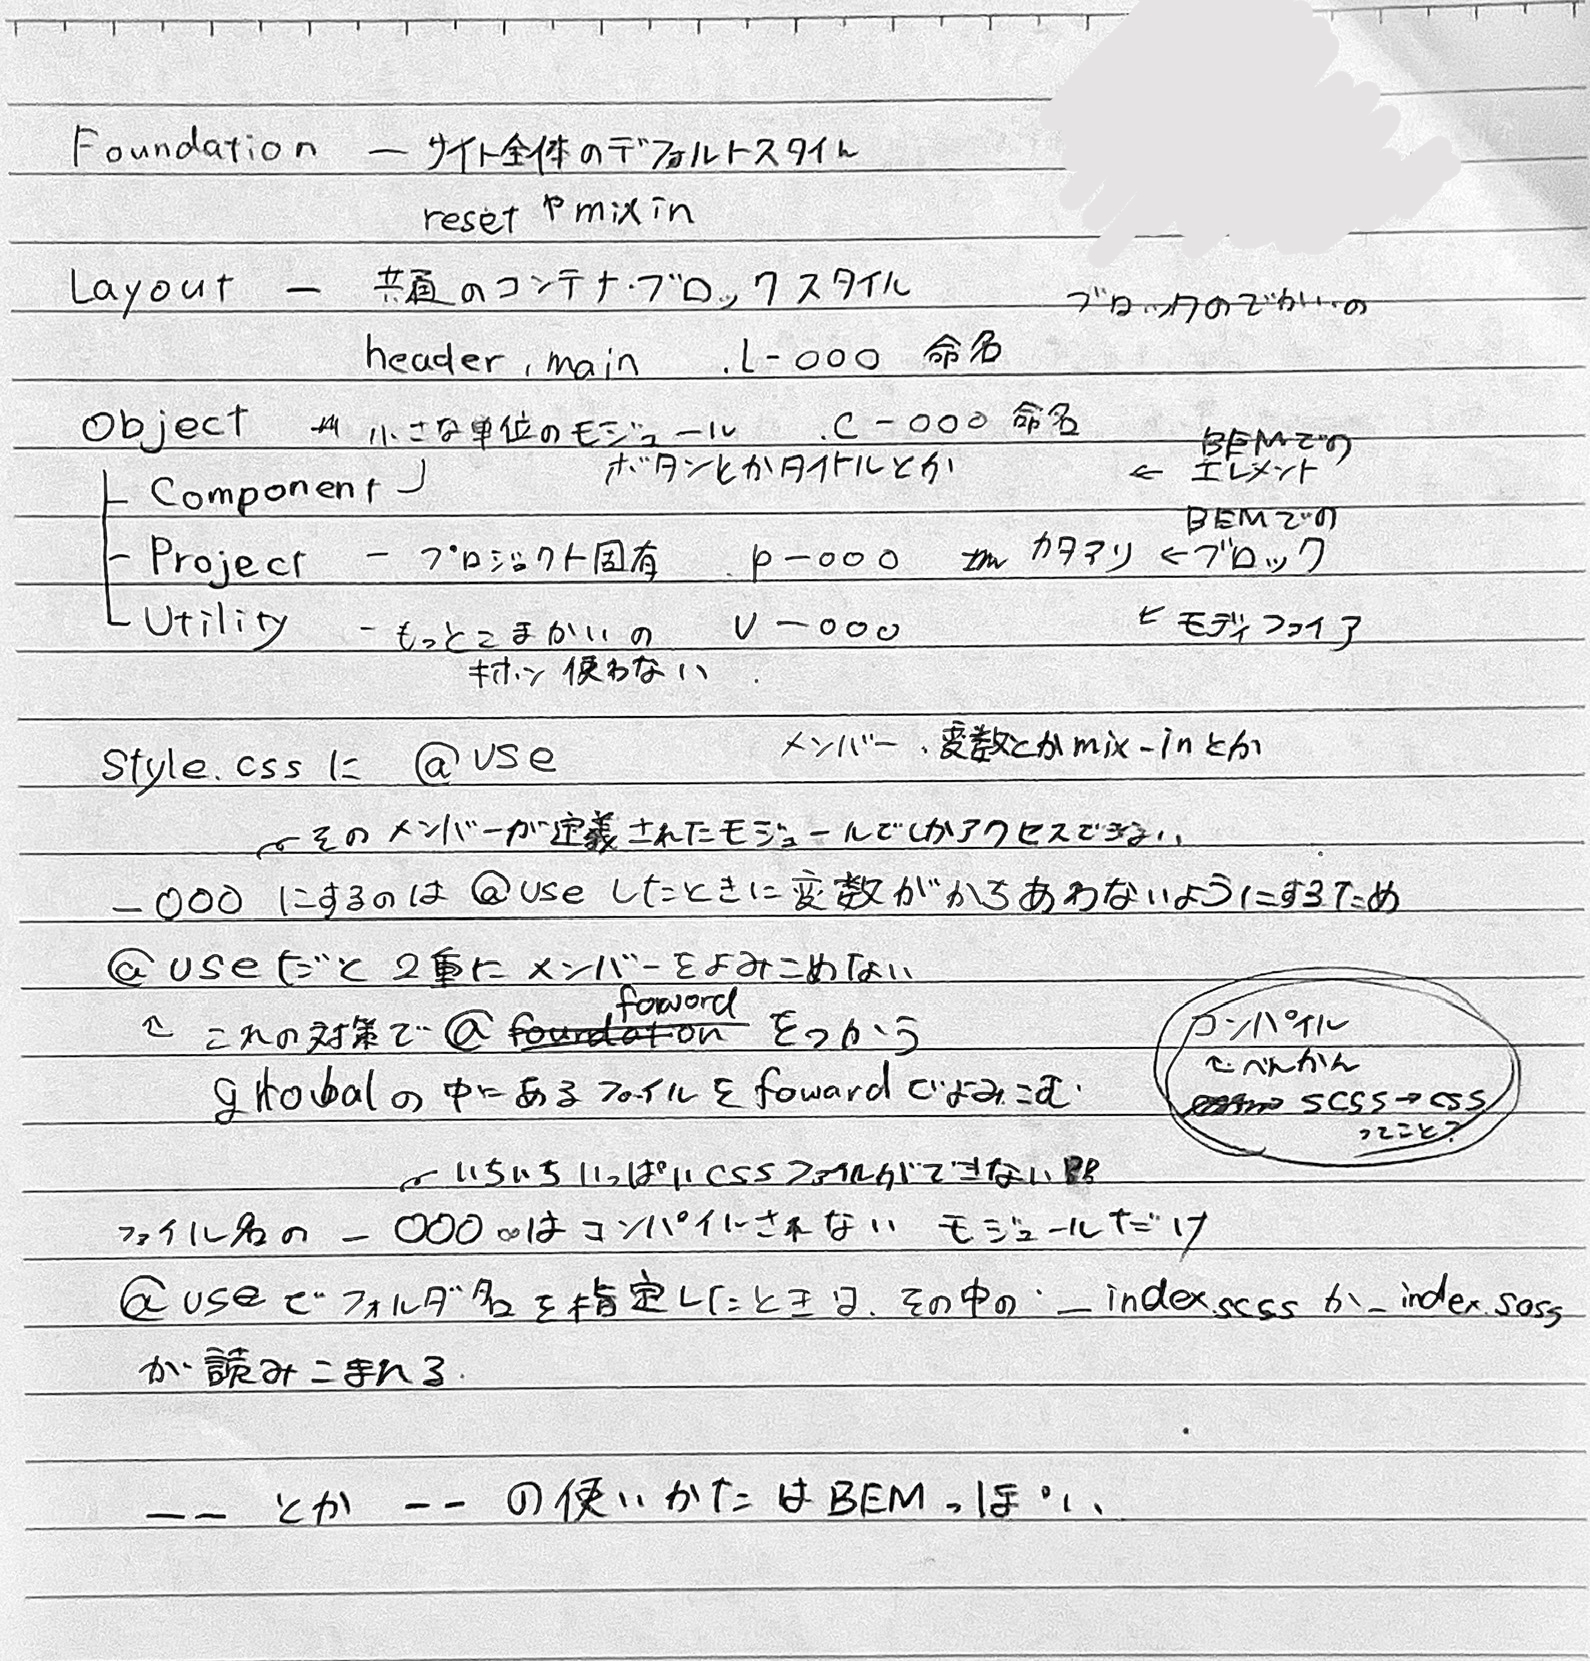 Foundation — サイト全体のデフォルトスタイル
reset や mixin
Layout — 共通のコンテナ・ブロックスタイル
ブロックのでかいの
header, main .l-○○○ 命名
Object 小さな単位のモジュール .c-○○○ 命名
Component ボタンとかタイトルとか
← BEMでのエレメント
Project - プロジェクト固有 .p-○○○ カタマリ ← BEMでのブロック
Utility - もっとこまかいの U-○○○ ← モディファイア
キホン使わない
style.css に @use メンバー、変数とか mix-in とか
そのメンバーが定義されたモジュールでしかアクセスできない
_○○○ にするのは @use したときに変数がかちあわないようにするため
@use だと 2重に メンバーをよみこめない
これの対策で @ foword をつかう
の中にあるファイルを foward でよみこむ
コンパイル
へんかん
scss→css
ってこと?
いちいちいっぱい css ファイルができない
ファイル名の _○○○ はコンパイルされない モジュールだけ
@use でフォルダ名を指定したときは、その中の _index.scss か _index.sass
が読みこまれる.
__ とか -- の使いかたは BEM っぽい